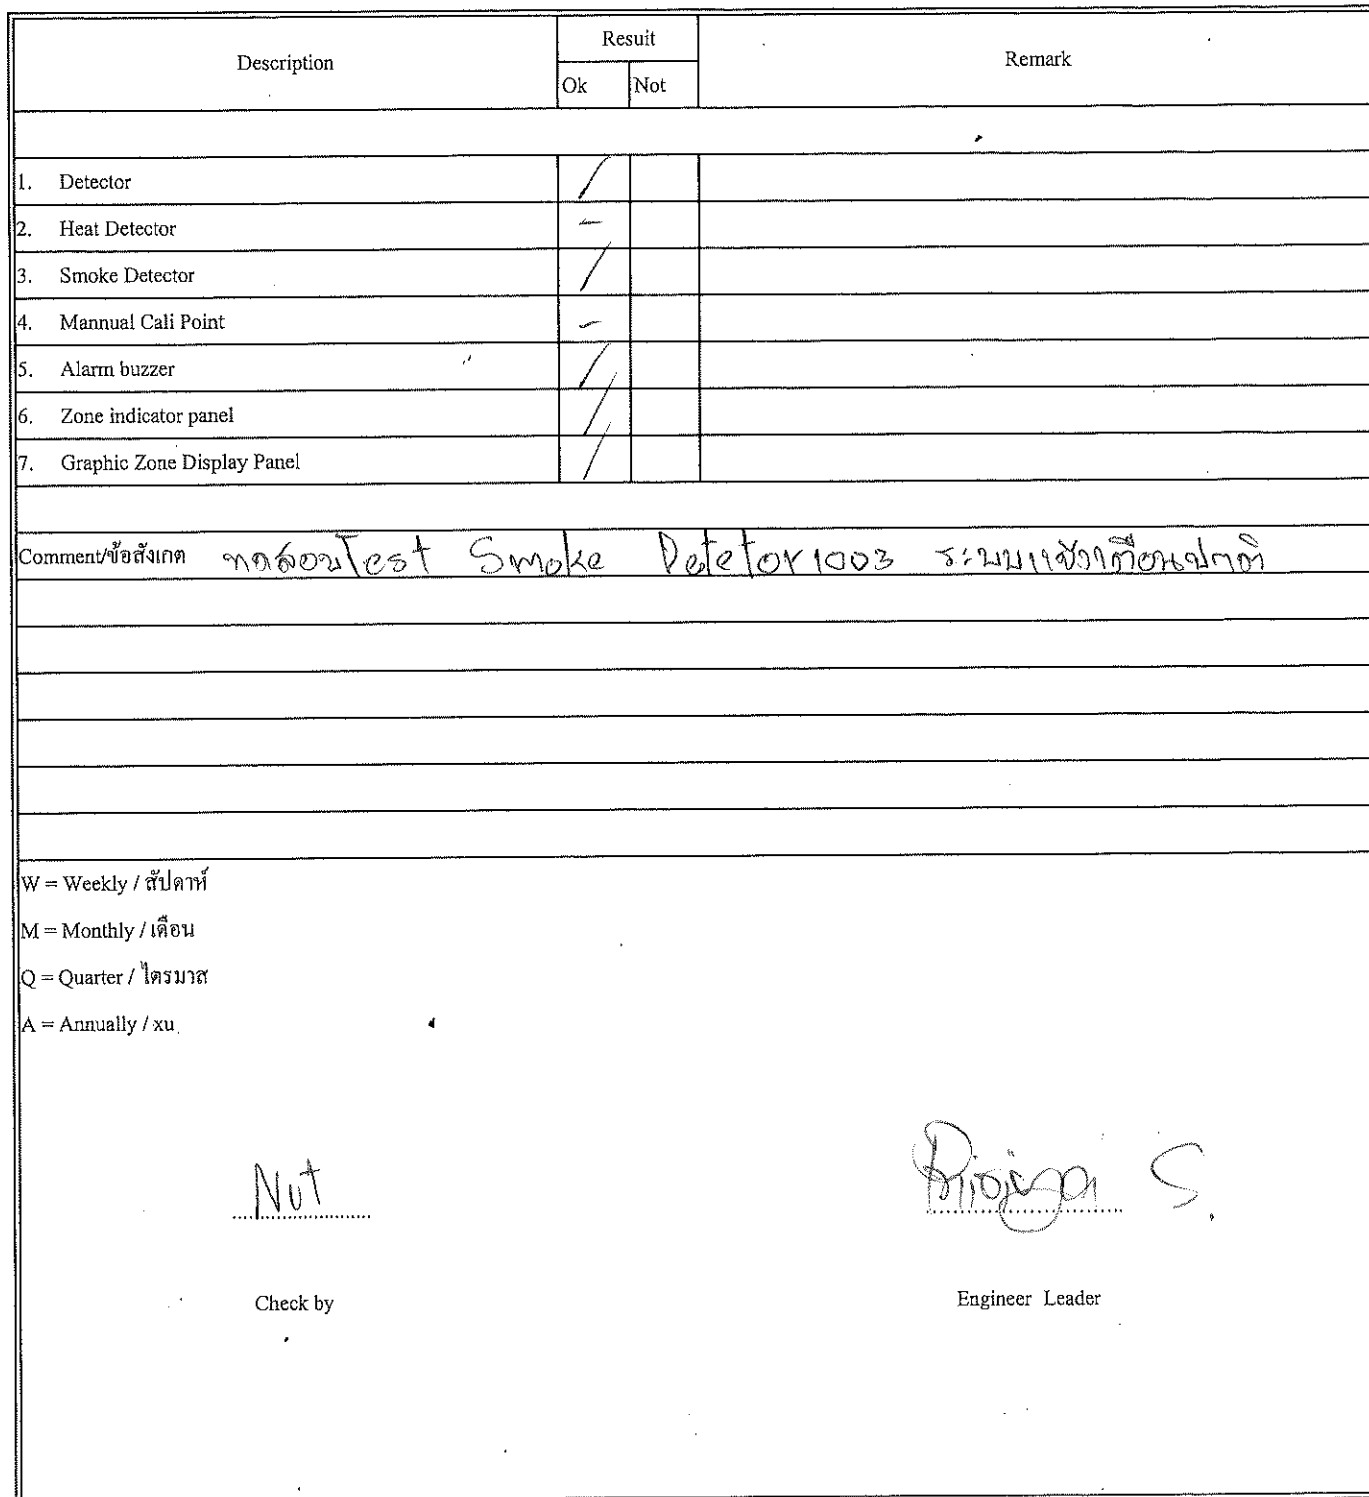 Description Resuit Remark
Ok Not
1. Detector /
2. Heat Detector -
3. Smoke Detector /
4. Mannual Cali Point -
5. Alarm buzzer /
6. Zone indicator panel /
7. Graphic Zone Display Panel /
Comment/ข้อสังเกต ทดสอบTest Smoke Detetor1003 ระบบแจ้งเตือนปกติ
W = Weekly / สัปดาห์
M = Monthly / เดือน
Q = Quarter / ไตรมาส
A = Annually / xu
Nut
S.
Check by Engineer Leader